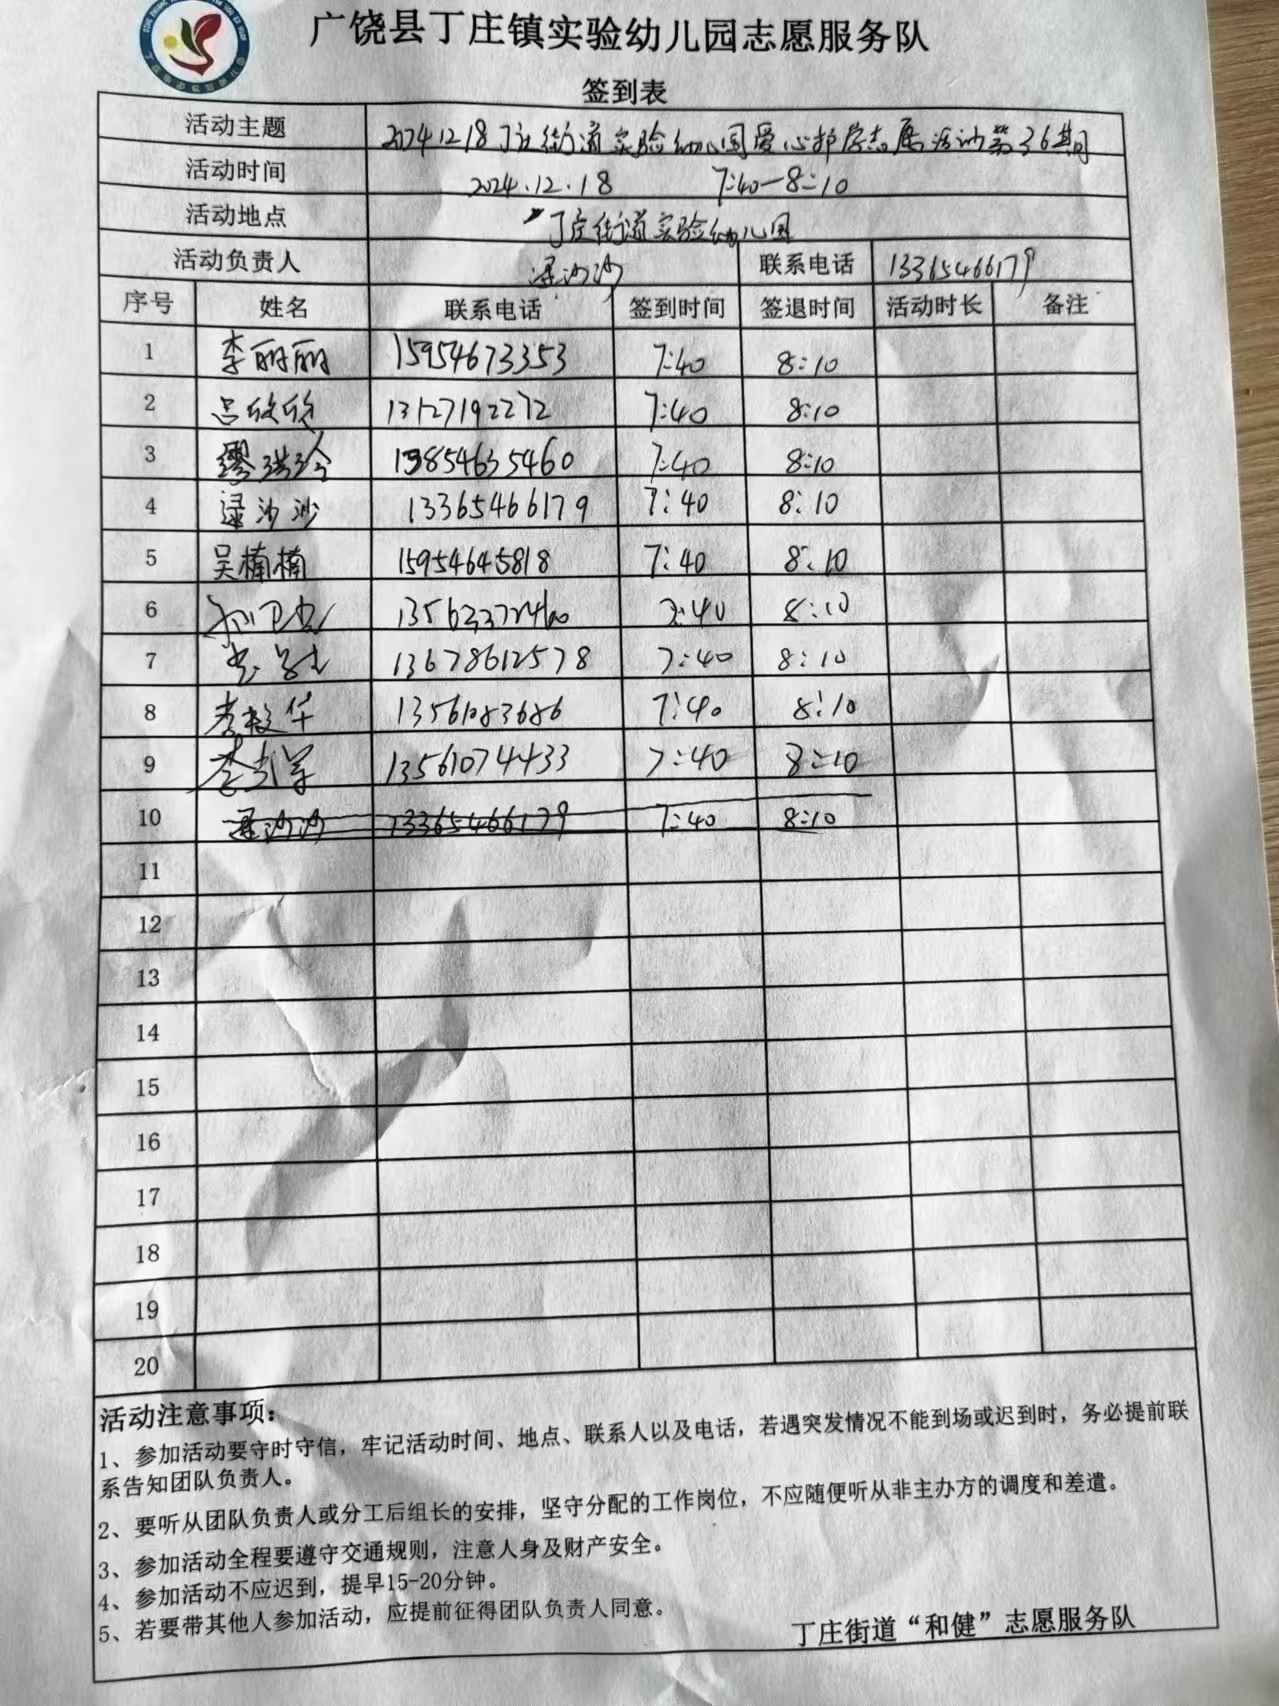 广饶县丁庄镇实验幼儿园志愿服务队
签到表
活动主题 2024.12.18丁庄街道实验幼儿园爱心护学志愿活动第36期
活动时间 2024.12.18 7:40-8:10
活动地点 丁庄街道实验幼儿园
活动负责人 逯沙沙 联系电话 13365466179
序号 姓名 联系电话 签到时间 签退时间 活动时长 备注
1 李丽丽 15954673353 7:40 8:10
2 吕欣欣 13127192272 7:40 8:10
3 缪洪玲 7:40 8:10
4 逯沙沙 13365466179 7:40 8:10
5 吴楠楠 15954645818 7:40 8:10
6 7:40 8:10
7 13678612578 7:40 8:10
8 13561083686 7:40 8:10
9 13561074433 7:40 8:10
10 逯沙沙 13365466179 7:40 8:10
11
12
13
14
15
16
17
18
19
20
活动注意事项：
1、参加活动要守时守信，牢记活动时间、地点、联系人以及电话，若遇突发情况不能到场或迟到时，务必提前联
系告知团队负责人。
2、要听从团队负责人或分工后组长的安排，坚守分配的工作岗位，不应随便听从非主办方的调度和差遣。
3、参加活动全程要遵守交通规则，注意人身及财产安全。
4、参加活动不应迟到，提早15-20分钟。
5、若要带其他人参加活动，应提前征得团队负责人同意。
丁庄街道“和健”志愿服务队